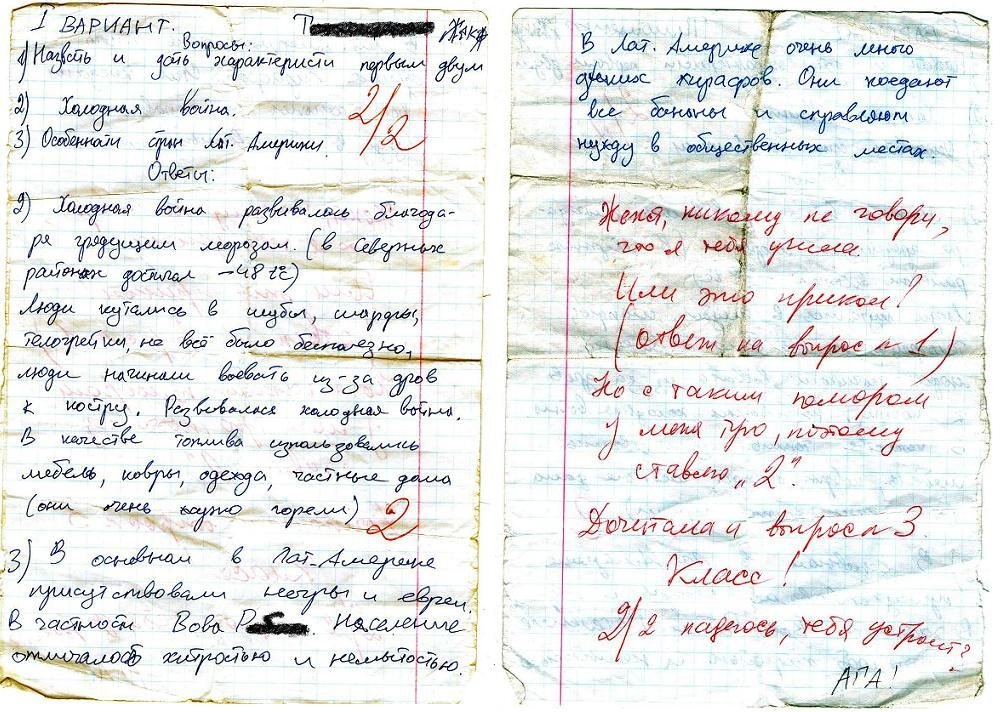 I ВАРИАНТ.
Вопросы:
1) Назвать и дать характеристи первым двум
2) Холодная война.
3) Особеннати стран Лат. Америки.
2/2
Ответы:
2) Холодная война развивалась благода-
ря грядущем морозом. (в северных
районах достигал -48 1°С)
Люди кутались в шубы, шарфы,
телогрейки, но всё было бесполезно,
люди начинали воевать из-за дров
к костру. Развивалася холодная война.
В качестве топлива использовались
мебель, ковры, одежда, частные дома
(они очень хужно горели)
2
3) В основном в Лат-Америке
присутствовали негры и евреи.
В частности Вова Население
отличалось хитростью и немытостью.
В Лат. Америке очень много
диких жирафов. Они поедают
все бананы и справляют
нужду в общественных местах.
Женя, никому не говори,
что я тебя учила.
Или это прикол?
(ответ на вопрос н 1)
Но с таким юмором
у меня туго, потому
ставлю „2".
Дочитала и вопрос н 3.
Класс!
2/2 надеюсь, тебя устроит?
АГА!